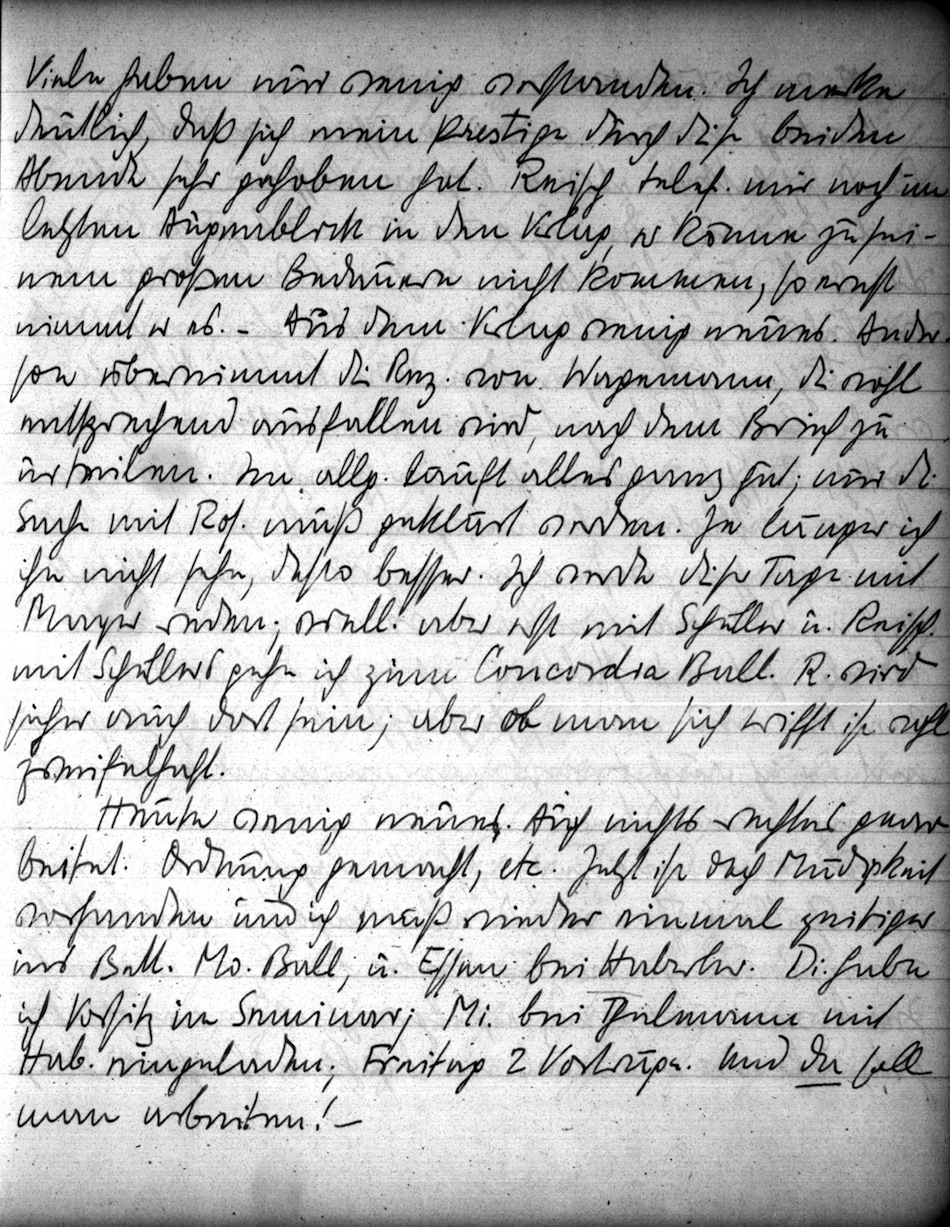 Viele haben nur wenig verstanden. Ich merke
deutlich, daß sich mein Prestige durch diese beiden
Abende sehr gehoben hat. Reisch telef. mir noch im
letzten Augenblick in den Klub, er könne zu sei-
nem großen Bedauern nicht kommen, so ernst
nimmt er es. – Aus dem Klub wenig neues. Ander-
son übernimmt die Rez. von Wagemann, die wohl
entsprechend ausfallen wird, nach dem Brief zu
urteilen. Im allg. läuft alles ganz gut; nur die
Sache mit Rof. muß geklärt werden. Je länger ich
ihn nicht sehe, desto besser. Ich werde diese Tage mit
Mayer reden; evtl. aber erst mit Schüller u. Reisch.
Mit Schüllers gehe ich zum Concordia Ball. R. wird
sicher auch dort sein; aber ob man sich trifft ist wohl
zweifelhaft.
Heute wenig neues. Auch nichts rechtes gear-
beitet. Ordnung gemacht, etc. Jetzt ist doch Müdigkeit
vorhanden und ich muß wieder einmal zeitiger
ins Bett. Mo. Ball, u. Essen bei Haberler. Di. habe
ich Vorsitz im Seminar; Mi. bei Thalmann mit
Hab. eingeladen; Freitag 2 Vorträge. Und da soll
man arbeiten! –